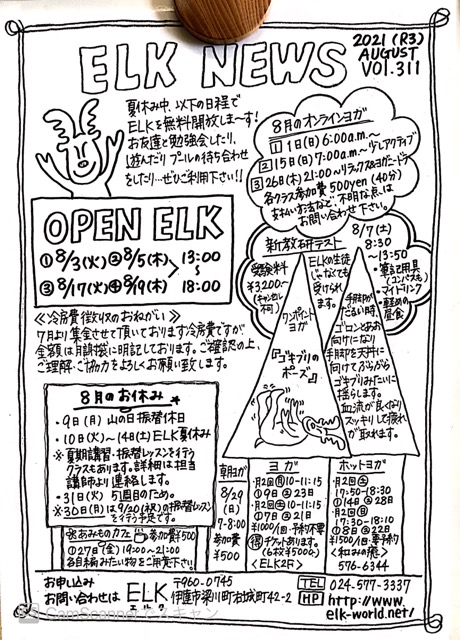 ELK NEWS
2021 (R3)
AUGUST
VOl.311
夏休み中、以下の日程で
ELKを無料開放しまーす!
お友達と勉強会したり、
遊んだり プールの待ち合わせ
をしたり…ぜひご利用下さい!!
OPEN ELK
①8/3(火)②8/5(木)
③8/17(火)④8/19(木)
13:00
〜
18:00
8月のオンラインヨガ
①1日(日)6:00a.m.〜
②15日(日)7:00a.m.〜
③26日(木)21:00〜リラックス&ヨガニードラ
各クラス参加費500yen(40分)
支払い方法など、不明な点は
お問い合わせ下さい。
新教研テスト
8/7(土)
8:30
〜13:50
受験料
¥3,200〜
(キャンセル
不可)
ELKの生徒
じゃなくても
受けられ
ます。
・筆記用具
(コンパスも)
・マイドリンク
・軽めの
昼食
≪冷房費徴収のおねがい≫
7月より集金させて頂いております冷房費ですが
金額は月謝袋に明記しております。ご確認の上、
ご理解・ご協力をよろしくお願い致します。
ワンポイント
ヨガ
『ゴキブリの
ポーズ』
手脚が
だるい時、
ゴロンとあお
向けになり
手脚を天井に
向けてぶらぶら
ゴキブリみたいに
揺らします。
血流が良くなり
スッキリして疲れ
が取れます。
8月のお休み
・9日(月)山の日振替休日
・10日(火)〜14日(土)ELK夏休み
※夏期講習・振替レッスンを行う
クラスもあります。詳細は担当
講師より連絡します。
・31日(火)5週目のため。
※30日(月)は9/20(祝)の振替レッスン
を行う予定です。
※あみものカフェ 参加費¥500
①27日(金)19:00〜21:00
各自編みたい物をご用意下さい。
朝ヨガ
8/29
(日)
7-8:00
参加費
¥500
ヨガ
・月2回(月)10-11:15
①9日②23日
・月2回(土)10-11:15
①7日②21日
¥1000/1回・予約不要
(得)チケットあります。
(6枚¥5000-)
<ELK2F>
ホットヨガ
・月2回(土)
17:50-18:30
①14日②28日
・月2回(日)
17:30-18:10
①8日②22日
¥1500/1回・要予約
<和みの癒>
576-6344
お申し込み
お問い合わせは
ELK
エルク
〒960-0745
伊達市梁川町右城町42-2
TEL 024-577-3337
HP http://www.
elk-world.net/
CamScannerでスキャン